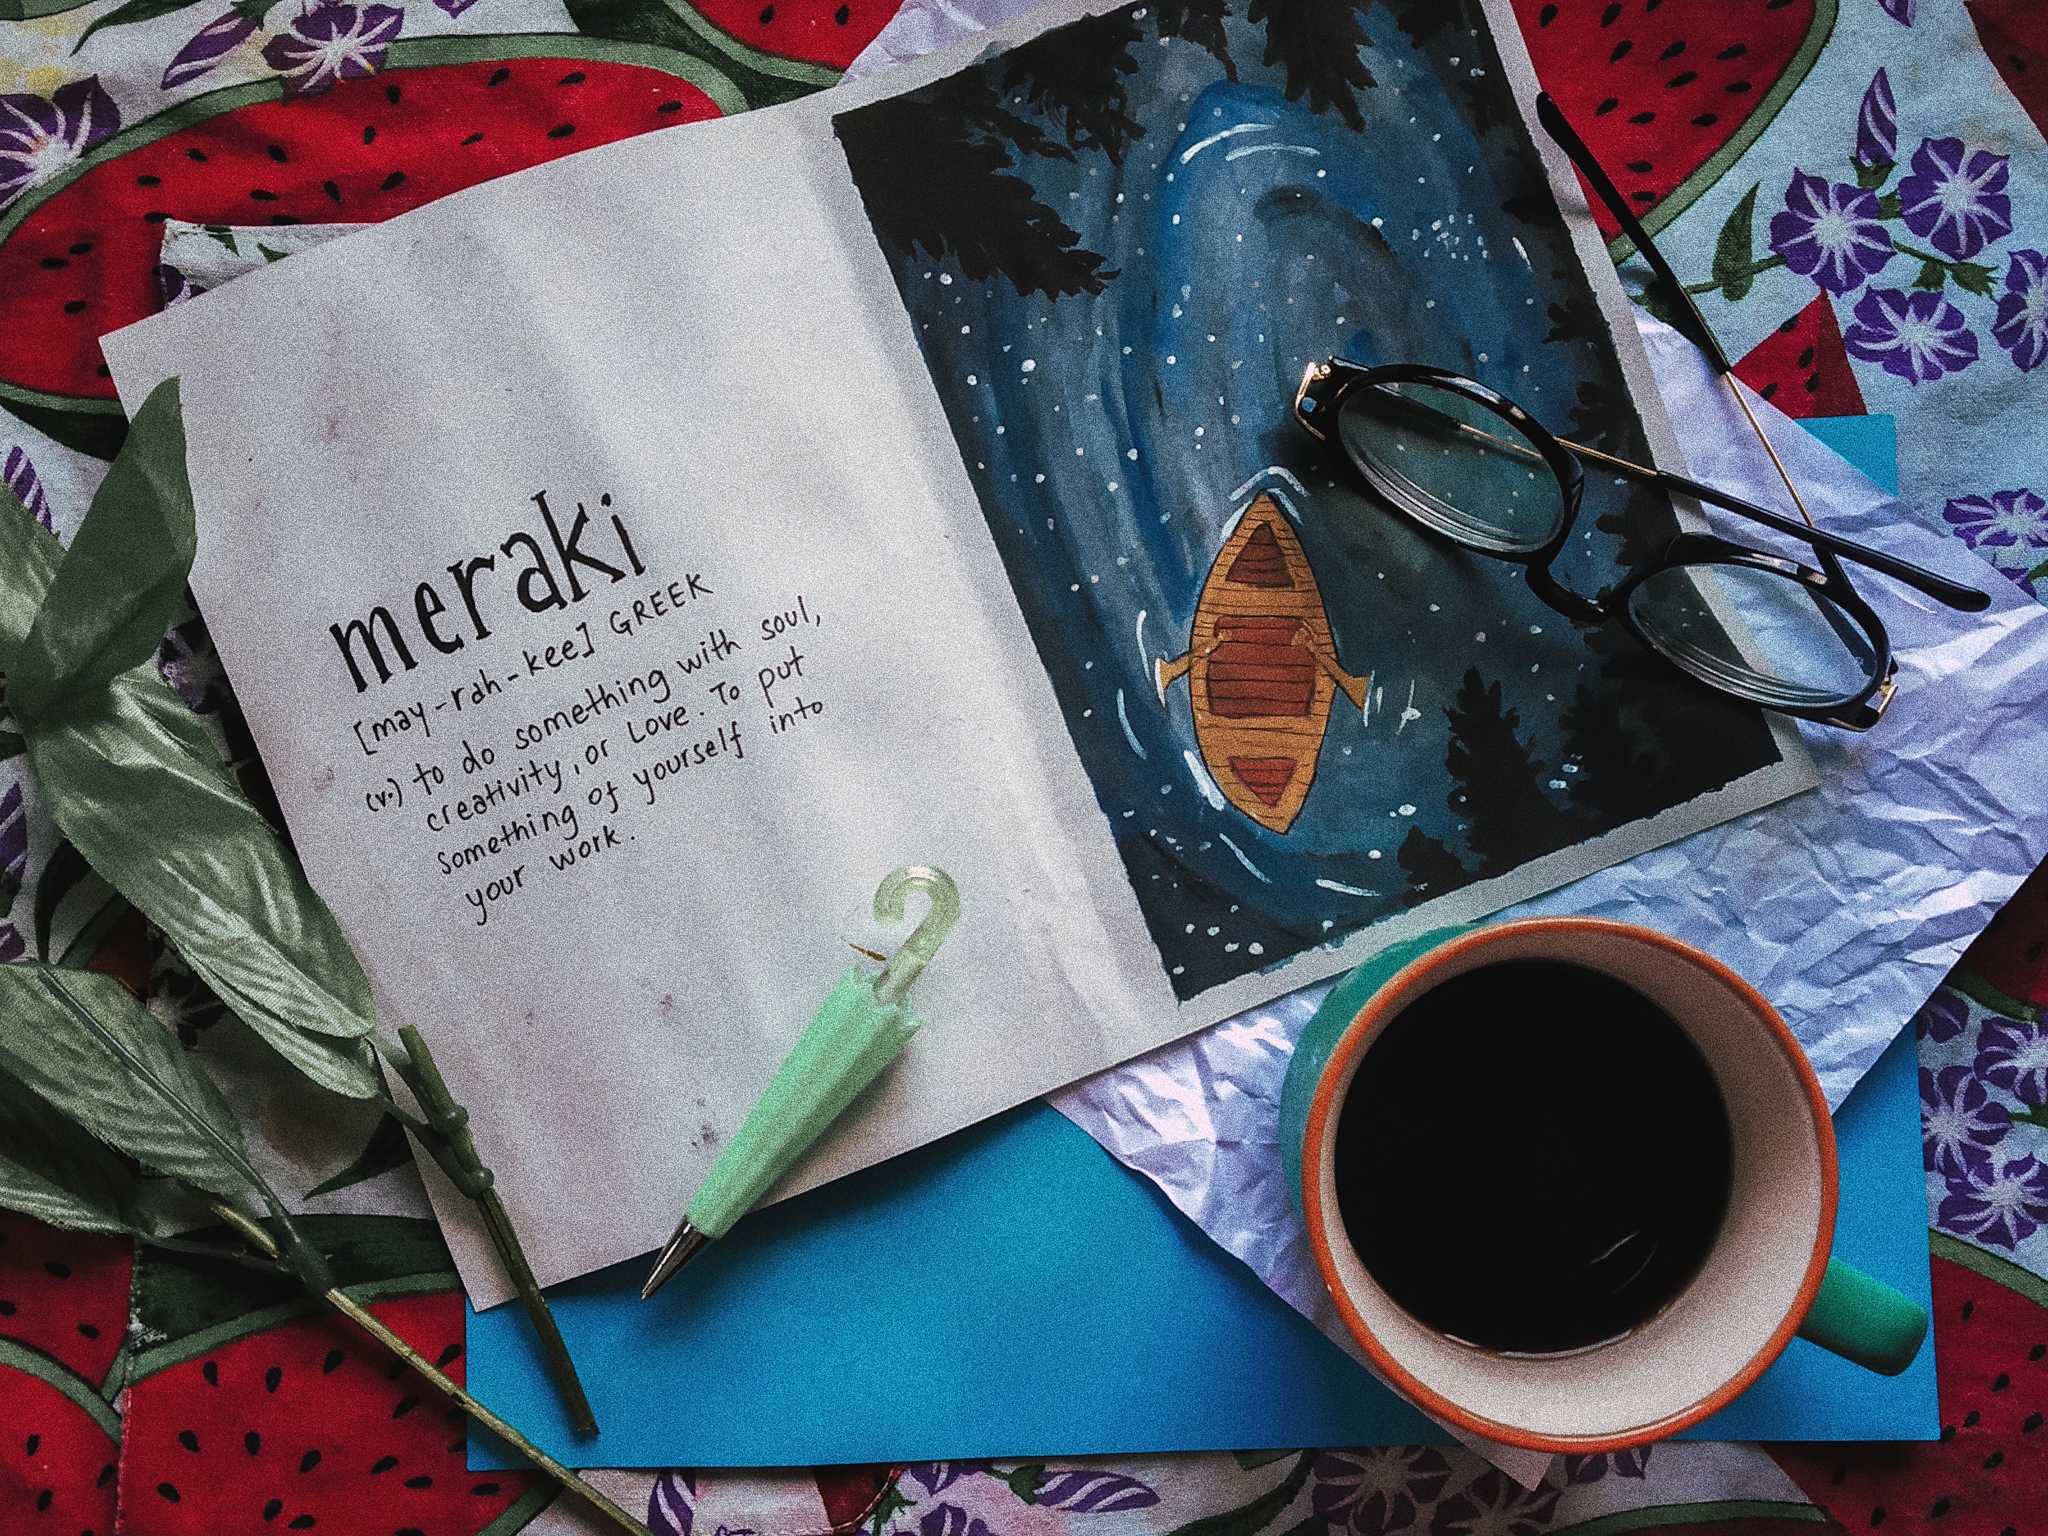 meraki
[may-rah-kee] GREEK
(v.) to do something with soul,
creativity, or Love. To put
Something of yourself into
your work.